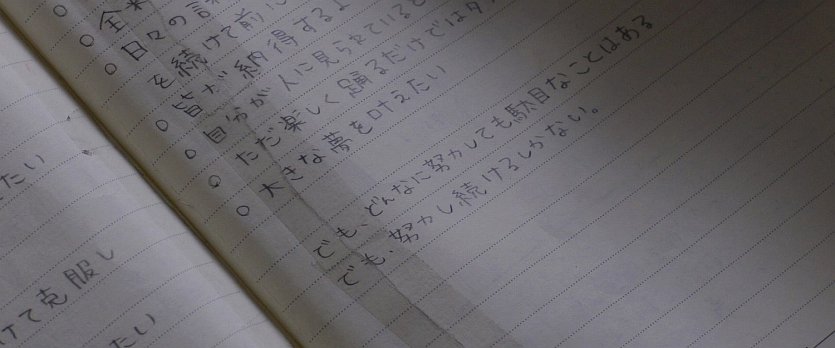 たい
けて克服し
たい
○ 全
○ 日々の
を続けて前に
○ 皆が納得する
○ 自分が人に見られていると
○ ただ楽しく踊るだけでは
○ 大きな夢を叶えたい
でも、どんなに努力しても駄目なことはある
でも、努力し続けるしかない。